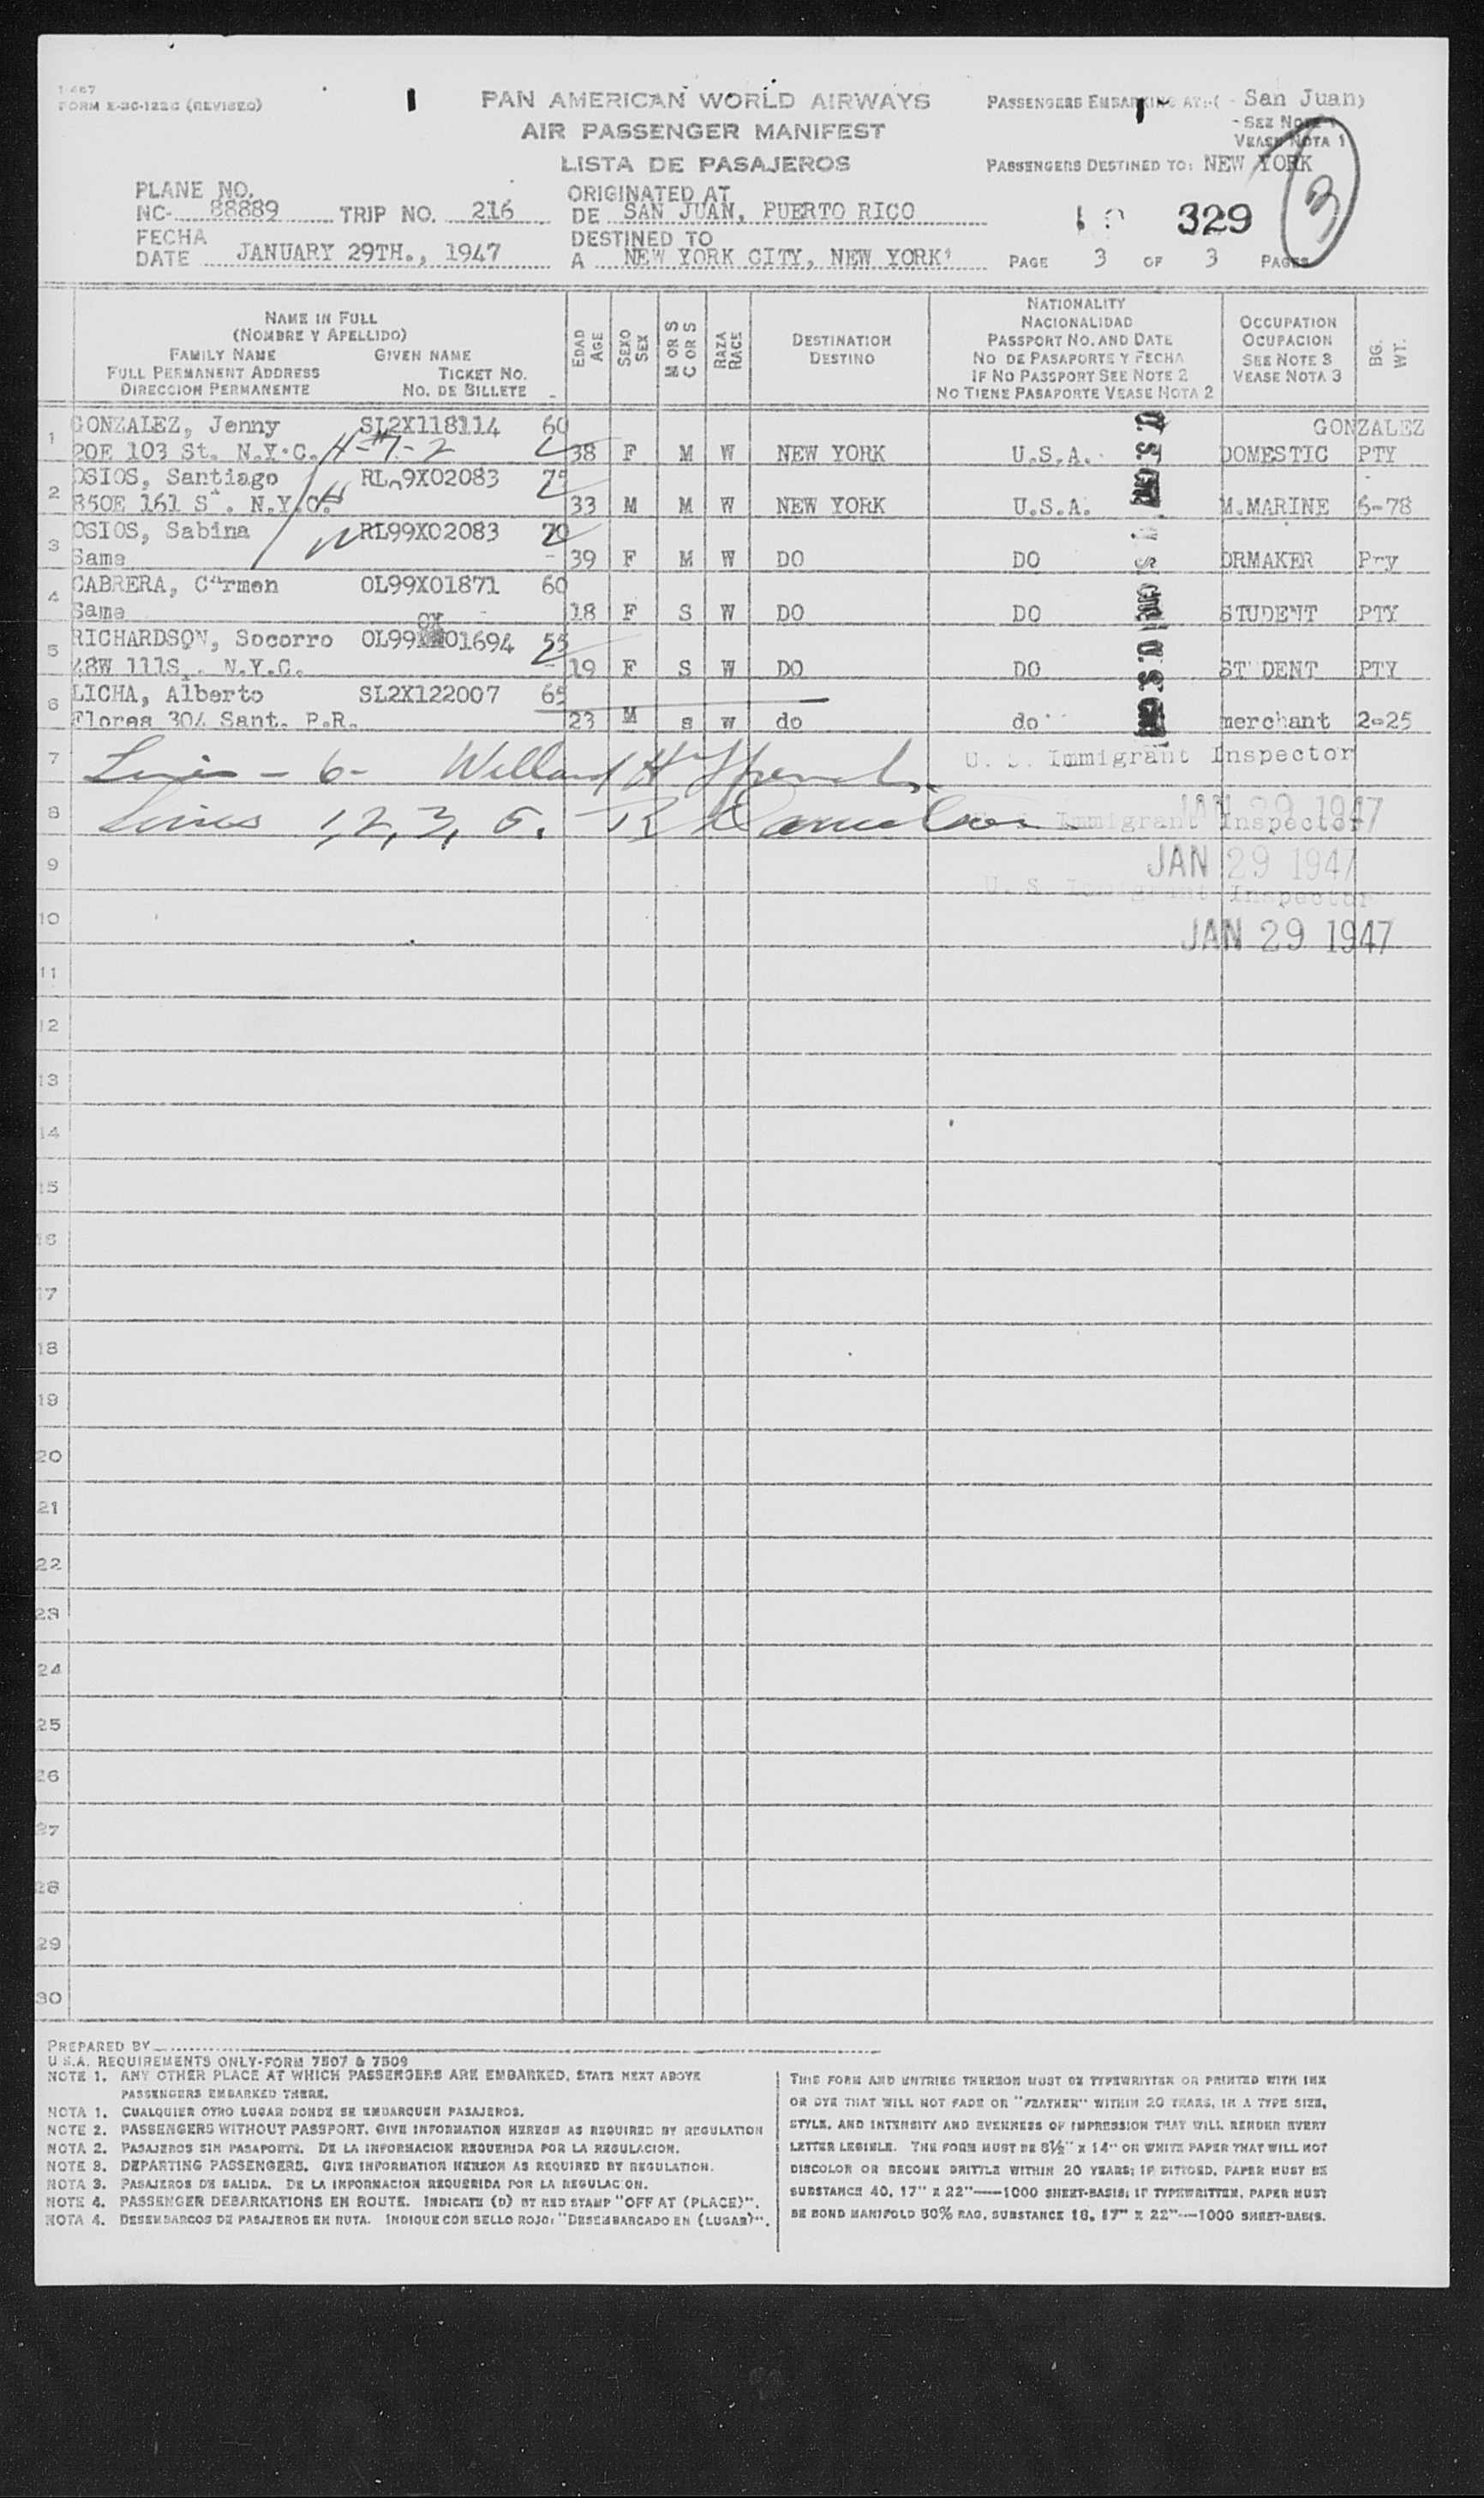 FORM E-3C-122C (REVISED)
PAN AMERICAN WORLD AIRWAYS
AIR PASSENGER MANIFEST
LISTA DE PASAJEROS
PASSENGERS EMBARKING AT:( - San Juan)
- SEE NOTE 1
VEASE NOTA 1
PASSENGERS DESTINED TO: NEW YORK
3
PLANE NO.
NC- 88889 TRIP NO. 216
ORIGINATED AT
DE SAN JUAN, PUERTO RICO
329
FECHA
DATE JANUARY 29TH., 1947
DESTINED TO
A NEW YORK CITY, NEW YORK
PAGE 3 OF 3 PAGES
NAME IN FULL
(NOMBRE Y APELLIDO)
FAMILY NAME GIVEN NAME
FULL PERMANENT ADDRESS TICKET NO.
DIRECCION PERMANENTE NO. DE BILLETE
EDAD
AGE
SEXO
SEX
M OR S
C OR S
RAZA
RACE
DESTINATION
DESTINO
NATIONALITY
NACIONALIDAD
PASSPORT NO. AND DATE
NO DE PASAPORTE Y FECHA
IF NO PASSPORT SEE NOTE 2
NO TIENE PASAPORTE VEASE NOTA 2
OCCUPATION
OCUPACION
SEE NOTE 3
VEASE NOTA 3
BG.
WT.
1 GONZALEZ, Jenny SL2X118114 60 GONZALEZ
20E 103 St. N.Y.C. 38 F M W NEW YORK U.S.A. DOMESTIC PTY
2 OSIOS, Santiago 75
850E 161 St. N.Y.C. 33 M M W NEW YORK U.S.A. M.MARINE 6-78
3 OSIOS, Sabina RL99X02083 70
Same 39 F M W DO DO DRMAKER Pry
4 CABRERA, Carmen OL99X01871 60
Same 18 F S W DO DO STUDENT PTY
5 RICHARDSON, Socorro 55
N.Y.C. 19 F S W DO DO ST DENT PTY
6 LICHA, Alberto SL2X122007 65
Flores 304 Sant. P.R. 23 M s w do do merchant 2-25
7 - 6 - U. S. Immigrant Inspector
8 Lines 1, 2, 3, 5. Immigrant Inspector
JAN 29 1947
9 JAN 29 1947
U. S. Immigrant Inspector
10 JAN 29 1947
11
12
13
14
15
16
17
18
19
20
21
22
23
24
25
26
27
28
29
30
PREPARED BY
U.S.A. REQUIREMENTS ONLY-FORM 7507 & 7509
NOTE 1. ANY OTHER PLACE AT WHICH PASSENGERS ARE EMBARKED, STATE NEXT ABOVE
PASSENGERS EMBARKED THERE.
NOTA 1. CUALQUIER OTRO LUGAR DONDE SE EMBARQUEN PASAJEROS.
NOTE 2. PASSENGERS WITHOUT PASSPORT. GIVE INFORMATION HEREON AS REQUIRED BY REGULATION
NOTA 2. PASAJEROS SIN PASAPORTE. DE LA INFORMACION REQUERIDA POR LA REGULACION.
NOTE 3. DEPARTING PASSENGERS. GIVE INFORMATION HEREON AS REQUIRED BY REGULATION.
NOTA 3. PASAJEROS DE SALIDA. DE LA INFORMACION REQUERIDA POR LA REGULACION.
NOTE 4. PASSENGER DEBARKATIONS EN ROUTE. INDICATE (D) BY RED STAMP "OFF AT (PLACE)".
NOTA 4. DESEMBARCOS DE PASAJEROS EN RUTA. INDIQUE CON SELLO ROJO: "DESEMBARCADO EN (LUGAR)".
THIS FORM AND ENTRIES THEREON MUST BE TYPEWRITTEN OR PRINTED WITH INK
OR DYE THAT WILL NOT FADE OR "FEATHER" WITHIN 20 YEARS, IN A TYPE SIZE,
STYLE, AND INTENSITY AND EVENNESS OF IMPRESSION THAT WILL RENDER EVERY
LETTER LEGIBLE. THE FORM MUST BE 8½" X 14" ON WHITE PAPER THAT WILL NOT
DISCOLOR OR BECOME BRITTLE WITHIN 20 YEARS; IF DITTOED, PAPER MUST BE
SUBSTANCE 40, 17" X 22"—1000 SHEET-BASIS; IF TYPEWRITTEN, PAPER MUST
BE BOND MANIFOLD 50% RAG, SUBSTANCE 18, 17" X 22"—1000 SHEET-BASIS.